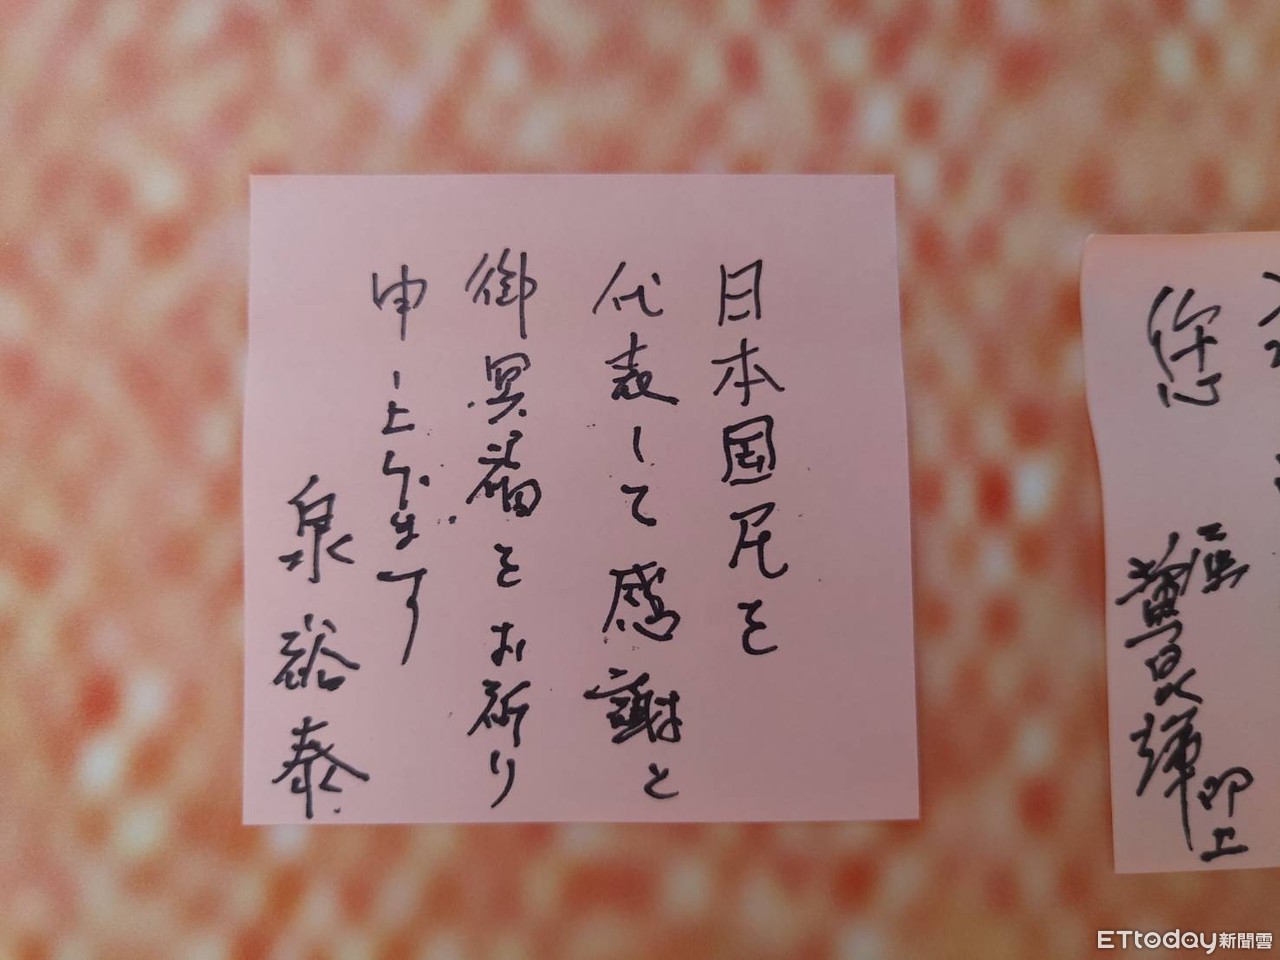 日本国民を
代表して感謝と
御冥福をお祈り
申し上げます
泉裕泰
您
敬上
ETtoday新聞雲